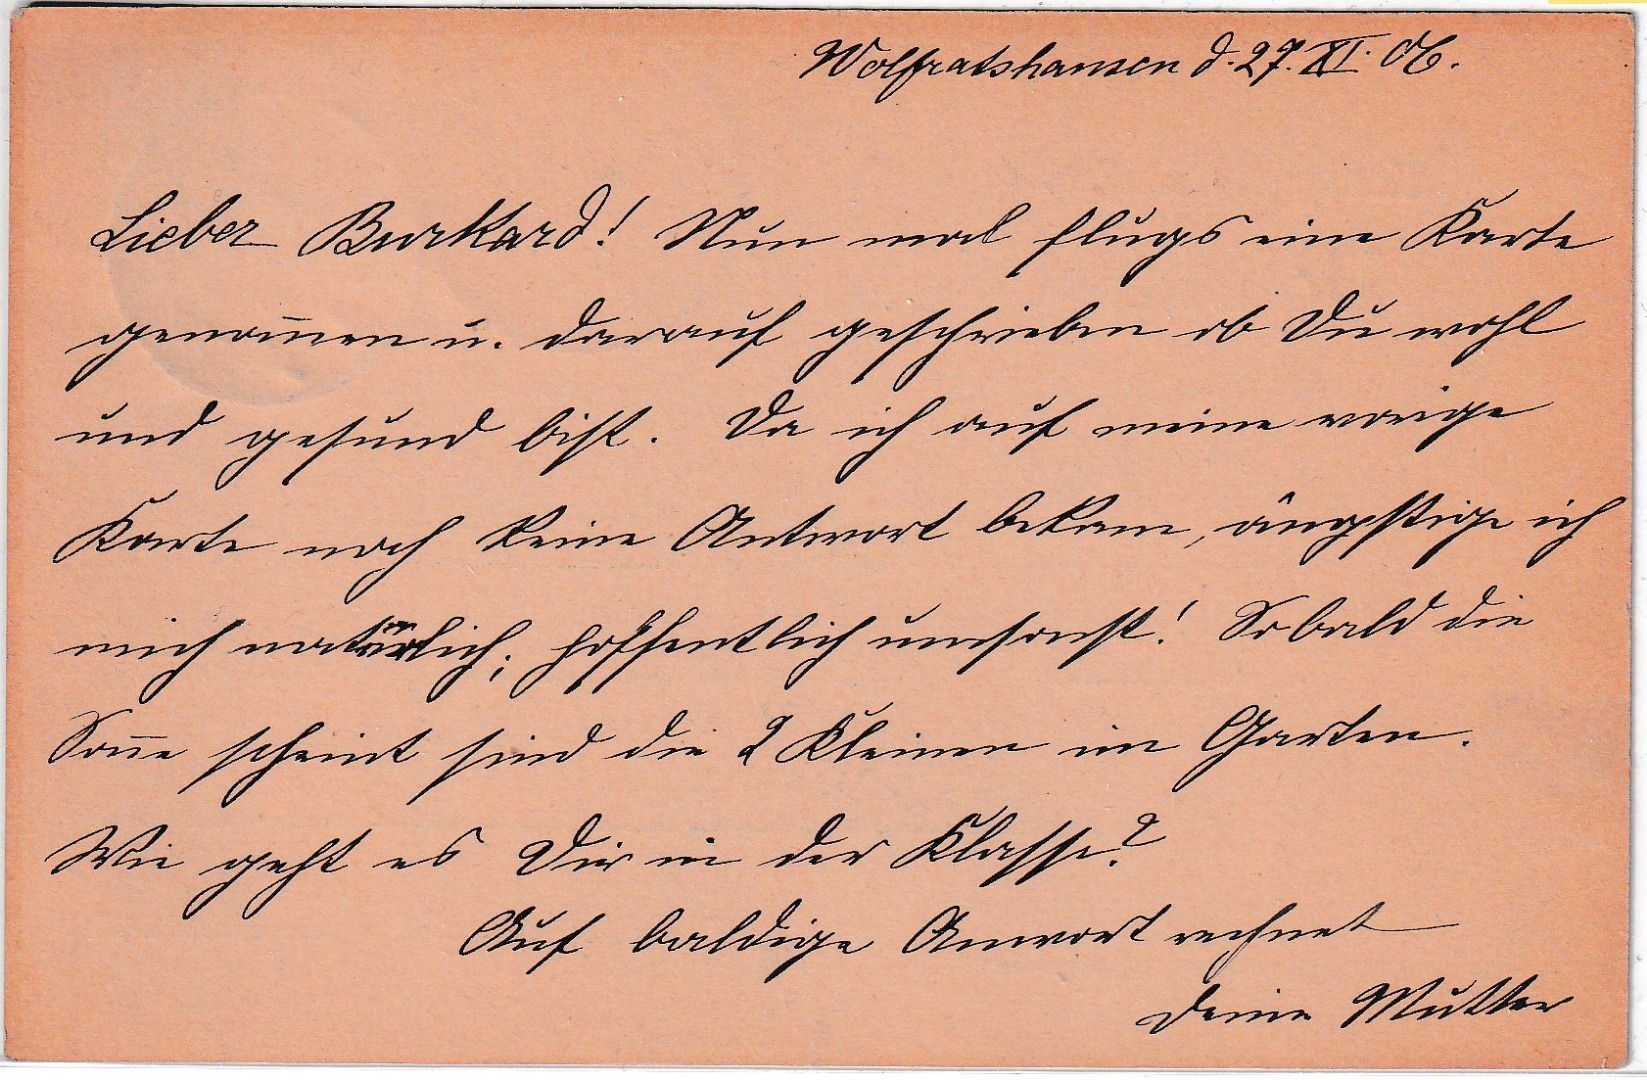 Wolfratshausen d. 27. XI. 06.
Lieber Burkard! Nun mal flugs eine Karte
genom̅en u. darauf geschrieben ob Du wohl
und gesund bist. Da ich auf meine vorige
Karte noch keine Antwort bekam, ängstige ich
mich natürlich; hoffentlich umsonst! Sobald die
Son̅e scheint sind die 2 Kleinen im Garten.
Wie geht es Dir in der Klasse?
Auf baldige Anwort rechnet
Deine Mutter